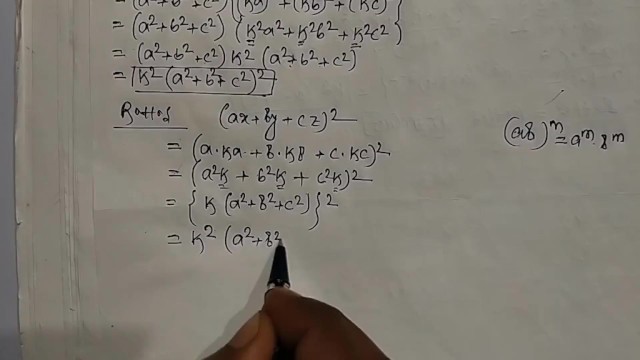 = (a²+b²+c²) {(ka)²+(kb)²+(kc)²}
= (a²+b²+c²) {k²a²+k²b²+k²c²}
= (a²+b²+c²) k² (a²+b²+c²)
= k² (a²+b²+c²)²
(ax+by+cz)²
= (a.ka+b.kb+c.kc)²
= (a²k+b²k+c²k)²
= {k (a²+b²+c²)}²
= k² (a²+b²
(ab)ᵐ=aᵐ.bᵐ